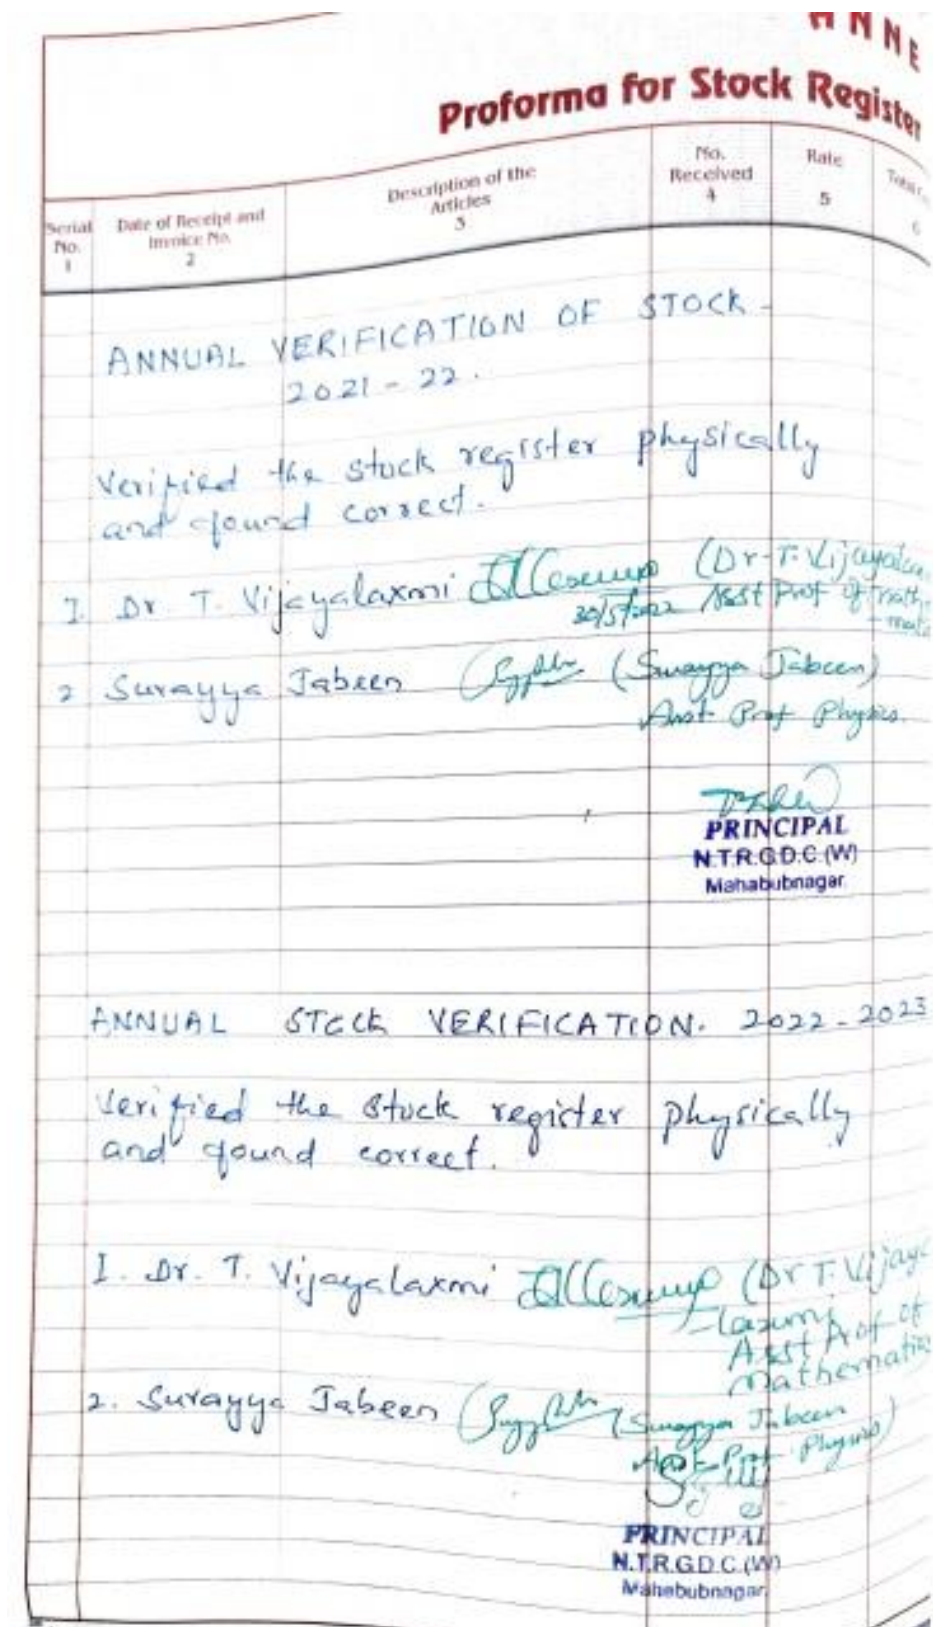 ANNE
Proforma for Stock Register
Serial No. 1
Date of Receipt and Invoice No. 2
Description of the Articles 3
No. Received 4
Rate 5
Total 6
ANNUAL VERIFICATION OF STOCK -
2021-22.
Verified the stock register physically
and found correct.
1. Dr. T. Vijayalaxmi (Dr. T. Vijayalax
30/5/2022 Asst Prof of Math
- matic
2 Surayya Jabeen (Surayya Jabeen)
Asst Prof Physics.
PRINCIPAL
N.T.R.G.D.C.(W)
Mahabubnagar.
ANNUAL STOCK VERIFICATION. 2022-2023
Verified the stock register physically
and found correct.
1. Dr. T. Vijayalaxmi (Dr T. Vijaya
-laxmi
Asst Prof of
Mathematic
2. Surayya Jabeen (Surayya Jabeen
Asst Prof Physics)
PRINCIPAL
N.T.R.G.D.C.(W)
Mahabubnagar.